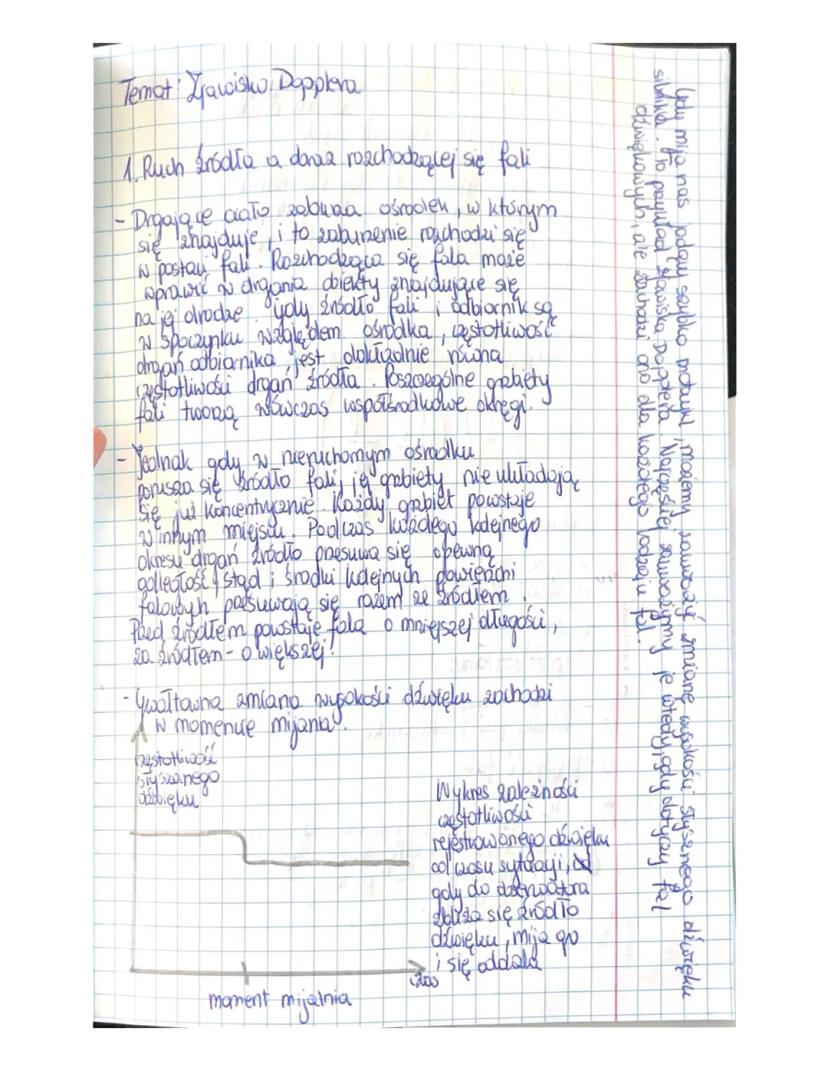 Temat: Zjawisko Dopplera
1. Ruch źródła a obraz rozchodzącej się fali
- Drgające ciało zaburza ośrodek, w którym
się znajduje, i to zaburzenie rozchodzi się
w postaci fali. Rozchodząca się fala może
wprawić w drgania obiekty znajdujące się
na jej drodze. Gdy źródło fali i odbiornik są
w spoczynku względem ośrodka, częstotliwość
drgań odbiornika jest dokładnie równa
częstotliwości drgań źródła. Poszczególne grzbiety
fali tworzą wówczas współśrodkowe okręgi.
- Jednak gdy w nieruchomym ośrodku
porusza się źródło fali, jej grzbiety nie układają
się już koncentrycznie. Każdy grzbiet powstaje
w innym miejscu. Podczas każdego kolejnego
okresu drgań źródło przesuwa się o pewną
odległość, stąd i środki kolejnych powierzchni
falowych przesuwają się razem ze źródłem.
Przed źródłem powstaje fala o mniejszej długości,
za źródłem - o większej!
- Gwałtowna zmiana wysokości dźwięku zachodzi
w momencie mijania.
częstotliwość
słyszanego
dźwięku
Wykres zależności
częstotliwości
rejestrowanego dźwięku
od czasu sytuacji,
gdy do obserwatora
zbliża się źródło
dźwięku, mija go
i się oddala
czas
moment mijalnia
Gdy mija nas jadący szybko motocykl, możemy zauważyć zmianę wysokości słyszanego dźwięku
silnika. To przykład zjawiska Dopplera. Najczęściej zauważymy je wtedy, gdy dotyczy fal
dźwiękowych, ale zachodzi ono dla każdego rodzaju fal.